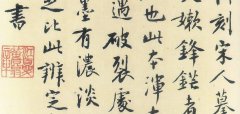 何刻宋人摹
嫩鋒鋩者
也此本渾
遇破裂處
墨有濃淡
是比此辨定
書